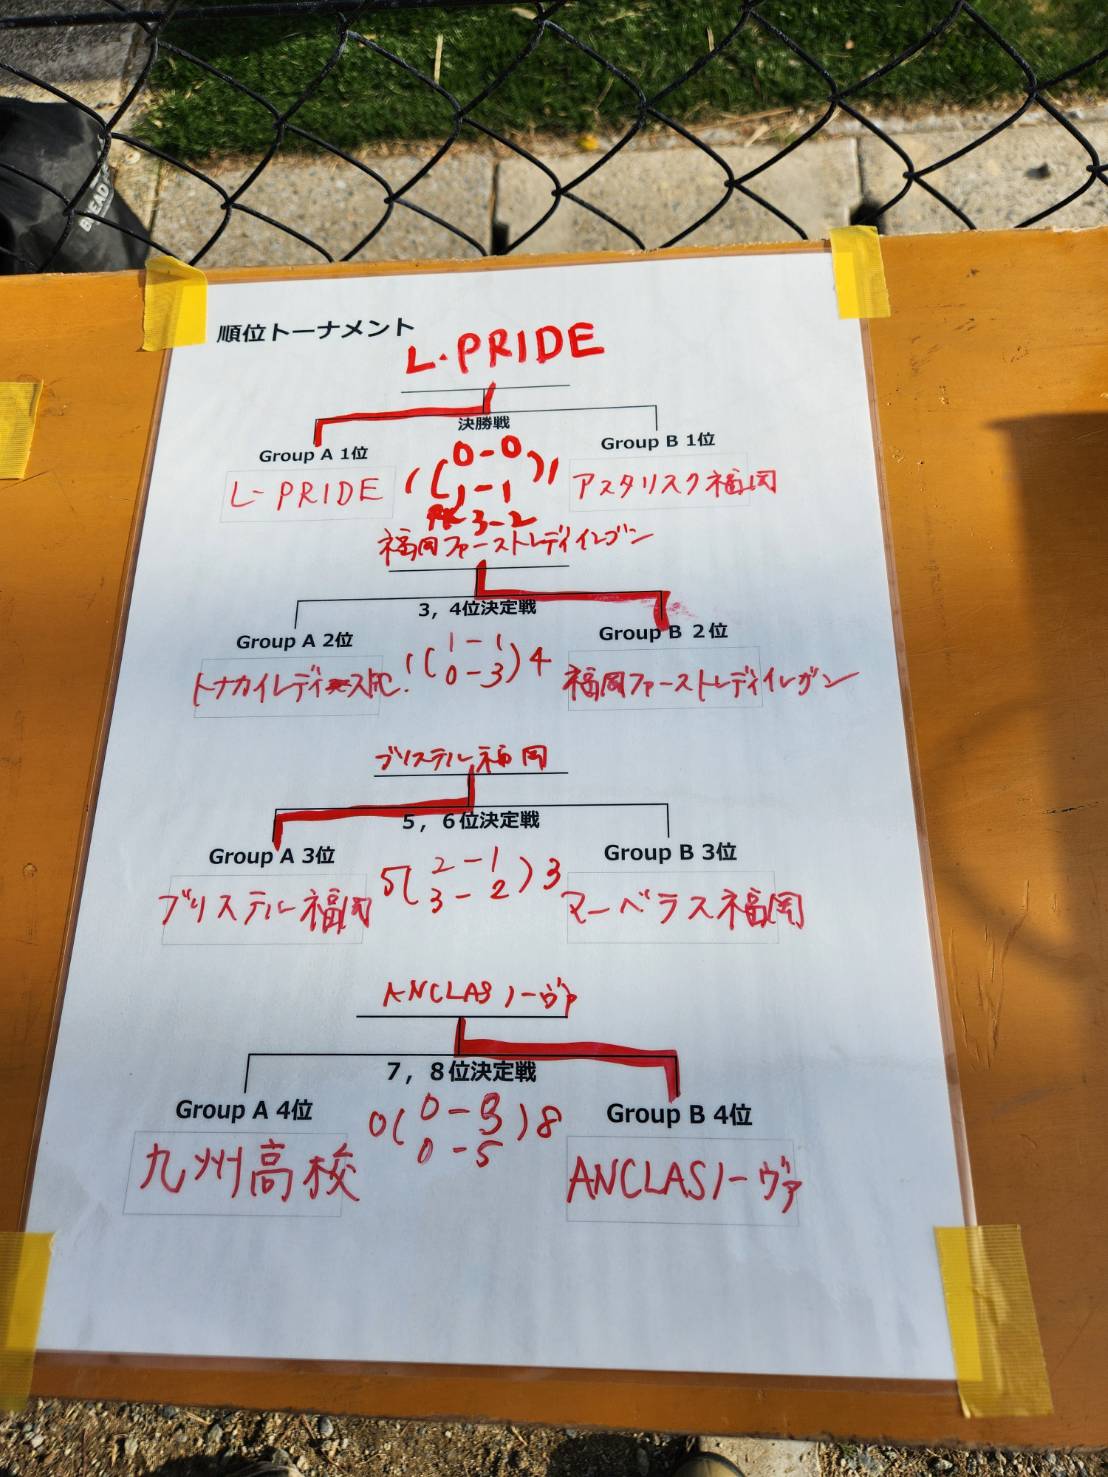 順位トーナメント
L-PRIDE
決勝戦
Group A 1位
Group B 1位
L-PRIDE
1(0-0)1
1-1
PK 3-2
アスタリスク福岡
福岡ファーストレディイレブン
3,4位決定戦
Group A 2位
Group B 2位
トナカイレディース
1(1-1)4
0-3
福岡ファーストレディイレブン
ブリステル福岡
5,6位決定戦
Group A 3位
Group B 3位
ブリステル福岡
5(2-1)3
3-2
マーベラス福岡
ANCLASノーヴァ
7,8位決定戦
Group A 4位
Group B 4位
九州高校
0(0-3)8
0-5
ANCLASノーヴァ